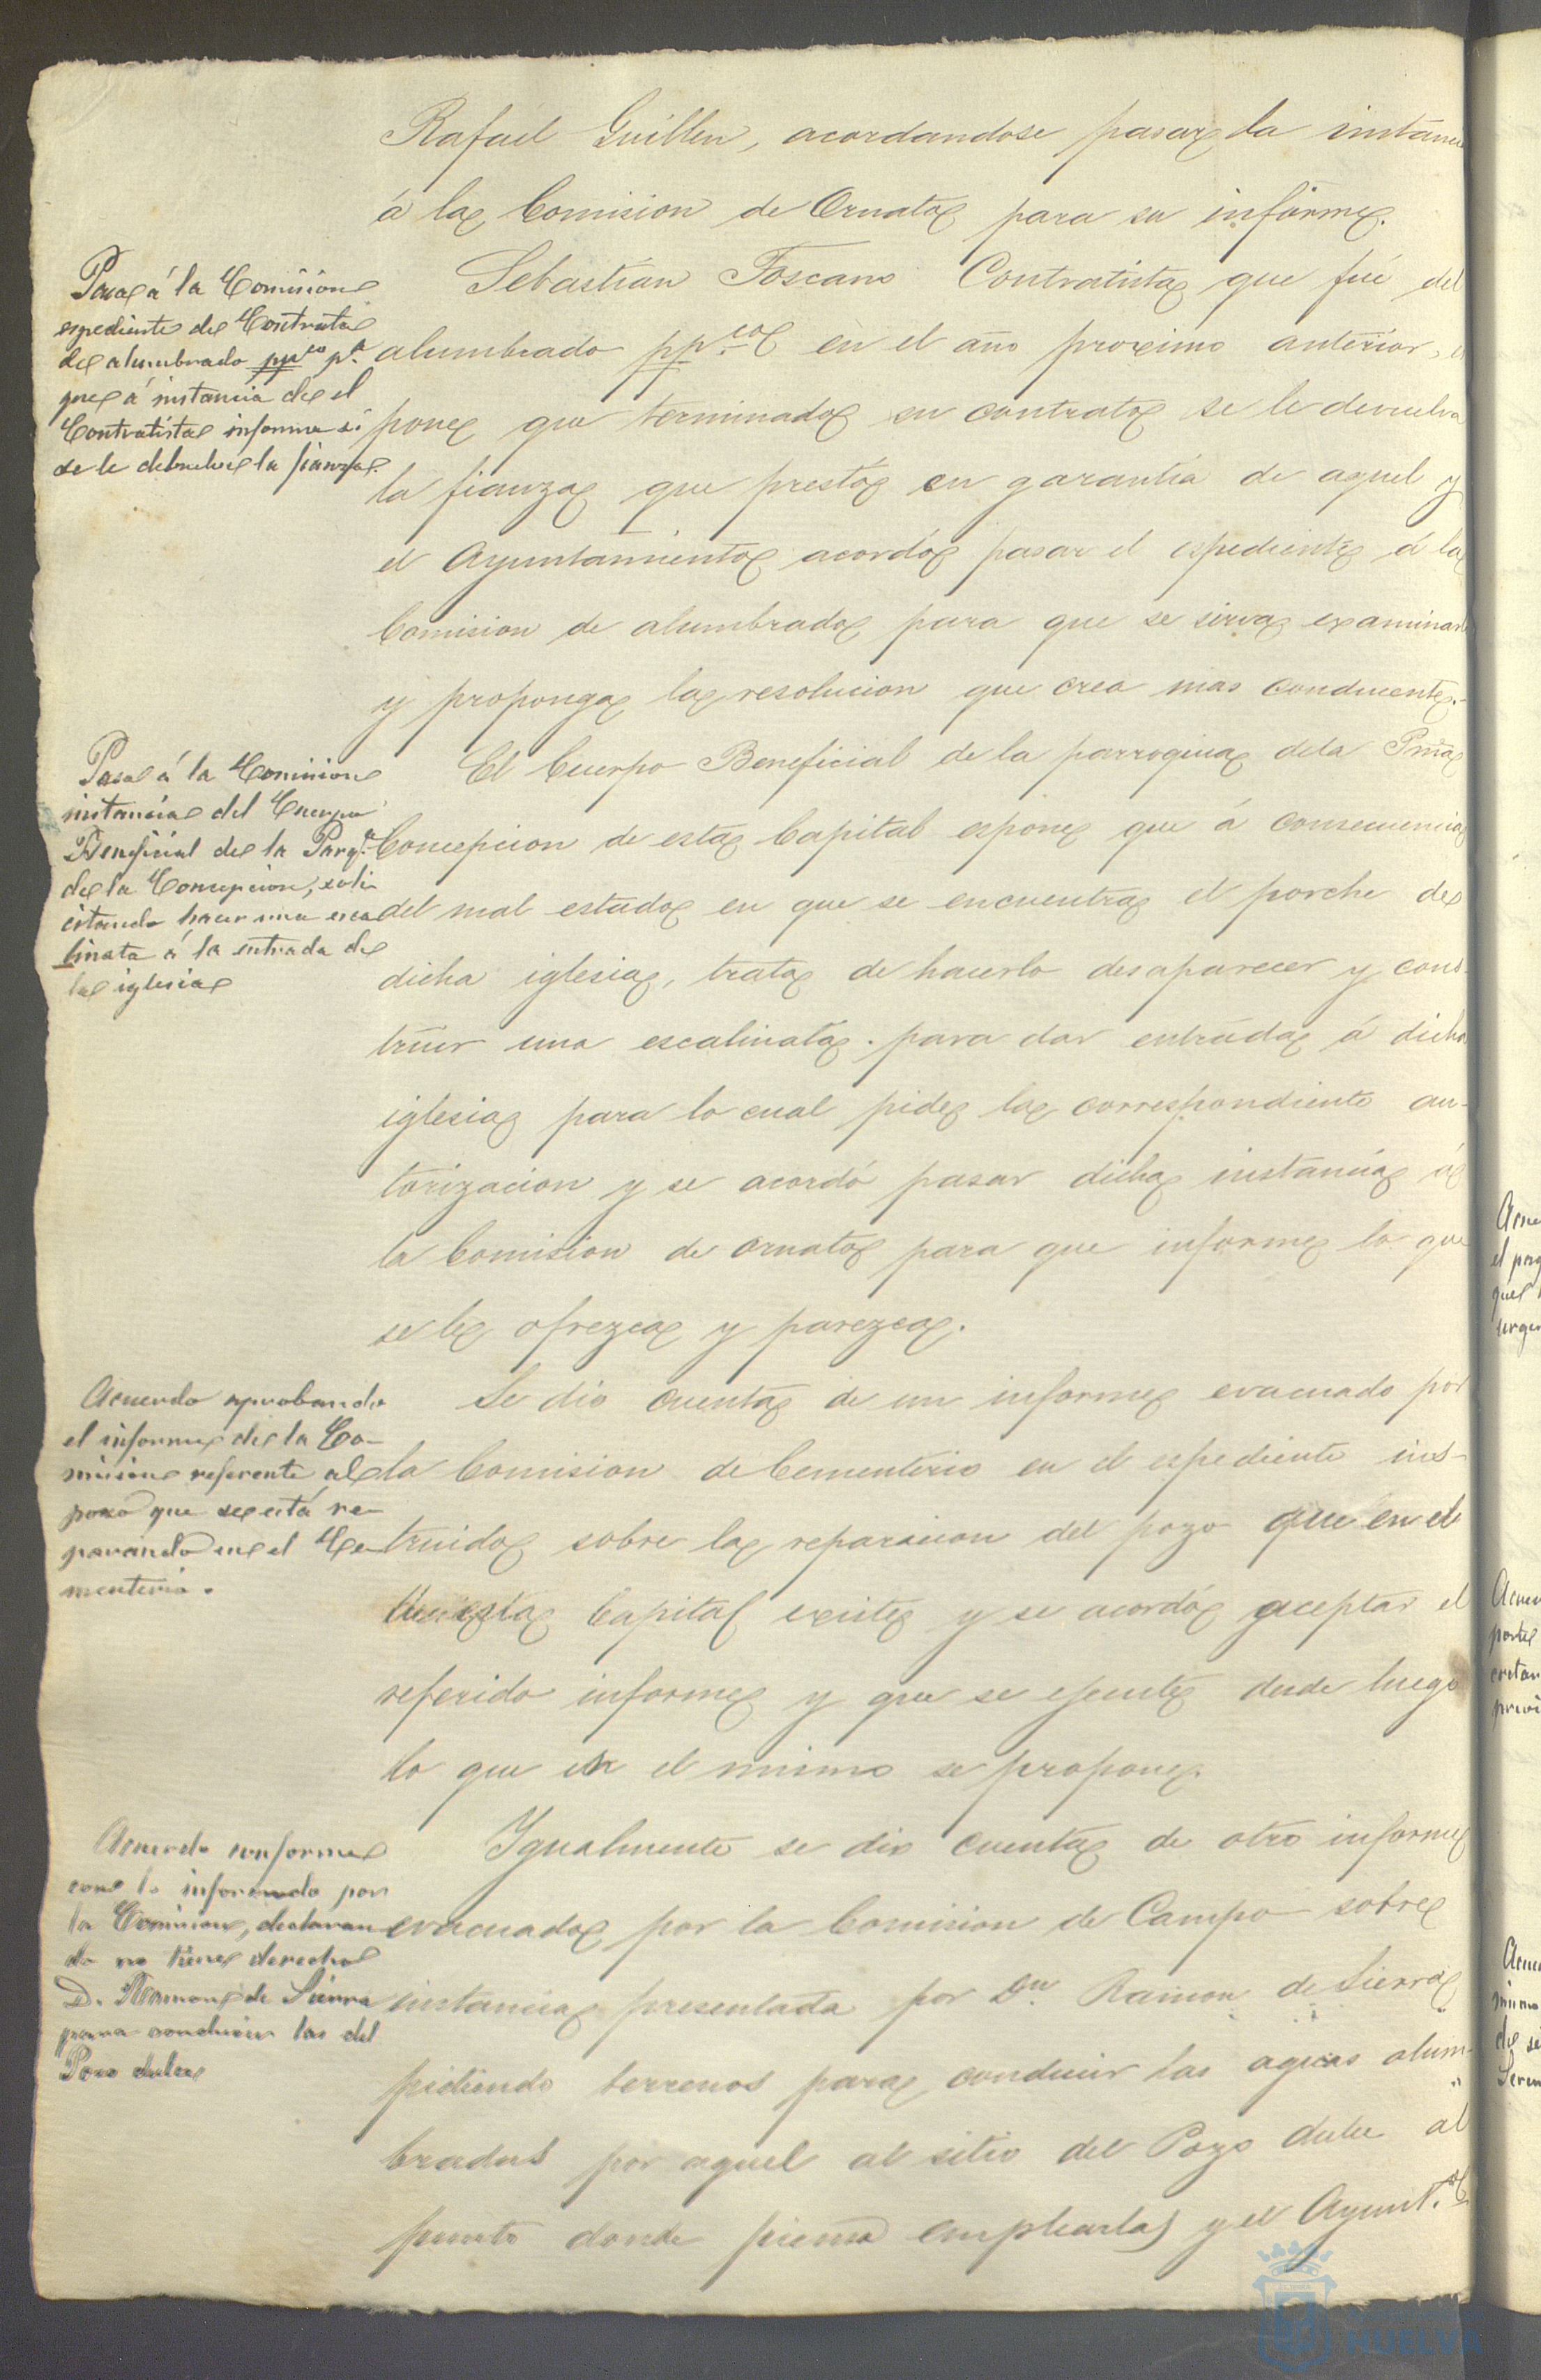 Rafael Guillen, acordandose pasar la instanc
á la Comision de Ornato para su informe.
Pasa á la Comision
espediente de Contrata
de alumbrado ppco pa
que á instancia de el
Contratista informe si
se le debuelve la fianza.
Sebastian Toscano Contratista que fué del
alumbrado ppco en el año proximo anterior, es
pone que terminado su contrato se le devuelva
la fianza que prestó en garantia de aquel y
el Ayuntamiento acordó pasar el espediente á la
Comision de alumbrado para que se sirva examinar
y proponga la resolucion que crea mas conducente.
Pasa á la Comision
instancia del Cuerpo
Beneficial de la Parqa
de la Concepcion, soli
citando hacer una esca
linata á la entrada de
la iglesia
El Cuerpo Beneficial de la parroquia dela Pma
Concepcion de esta Capital espone que á consecuencia
del mal estado en que se encuentra el porche de
dicha iglesia, trata de hacerlo desaparecer y cons-
truir una escalinata para dar entrada á dicha
iglesia para lo cual pide la correspondiente au-
torizacion y se acordó pasar dicha instancia á
la Comision de ornato para que informe lo que
se le ofrezca y parezca.
Acuerdo aprobando
el informe de la Co-
mision referente al
pozo que se está re-
parando en el Ce-
menterio.
Se dio cuenta de un informe evacuado por
la Comision de Cementerio en el espediente ins-
truido sobre la reparacion del pozo que en el
de esta Capital existe y se acordó aceptar el
referido informe y que se ejecute desde luego
lo que en el mismo se propone.
Acuerdo conforme
con lo informado por
la Comision, declaran
do no tiene derecho
D. Ramon de Sierra
para conducir las del
Pozo dulce
Igualmente se dio cuenta de otro informe
evacuado por la Comision de Campo sobre
instancia presentada por Dn Ramon de Sierra
pidiendo terrenos para conducir las aguas alum-
bradas por aquel al sitio del Pozo dulce al
punto donde piensa emplearlas y el Ayuntto
HUELVA